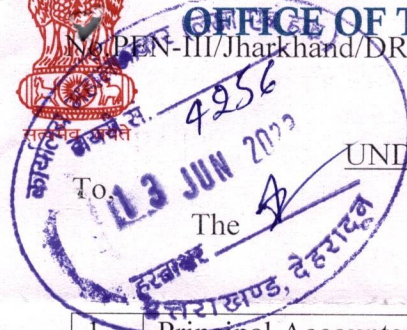 OFFICE OF T
No PEN-III/Jharkhand/DR
सत्यमेव जयते
कार्यालय
4256
13 JUN
UND
To,
The
हस्ताक्षर
उत्तराखण्ड, देहरादून
1 Principal Accounta